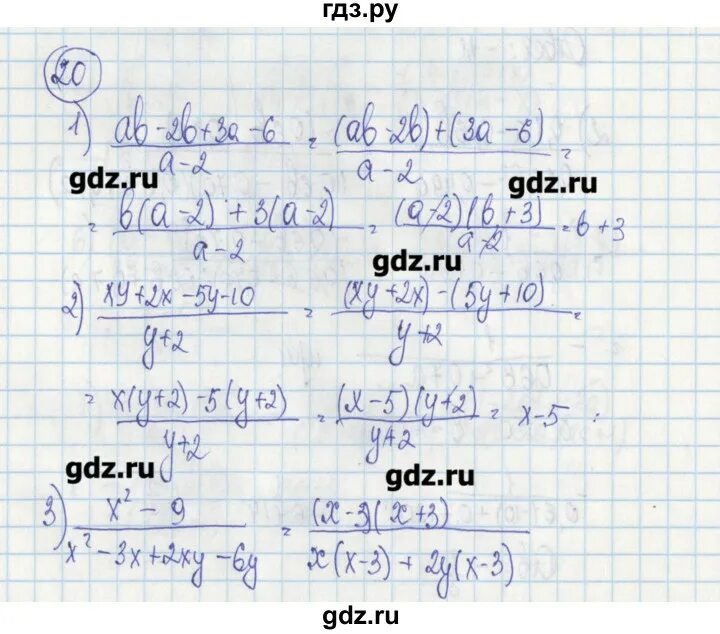 гдз.ру
20
1) (ab - 2b + 3a - 6)/(a - 2) = ((ab - 2b) + (3a - 6))/(a - 2) =
gdz.ru gdz.ru
= (b(a - 2) + 3(a - 2))/(a - 2) = ((a - 2)(b + 3))/(a - 2) = b + 3
gdz.ru
2) (xy + 2x - 5y - 10)/(y + 2) = ((xy + 2x) - (5y + 10))/(y + 2) =
= (x(y + 2) - 5(y + 2))/(y + 2) = ((x - 5)(y + 2))/(y + 2) = x - 5
gdz.ru gdz.ru
3) (x² - 9)/(x² - 3x + 2xy - 6y) = ((x - 3)(x + 3))/(x(x - 3) + 2y(x - 3))
gdz.ru